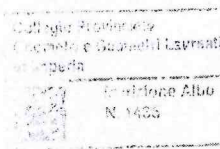 Collegio Provinciale
Geometri e Geometri Laureati
di Imperia
Iscrizione Albo
N. 1435